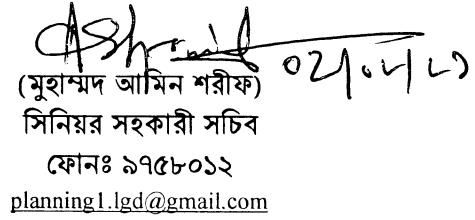 (মুহাম্মদ আমিন শরীফ)
সিনিয়র সহকারী সচিব
ফোনঃ ৯৭৫৮০১২
planning1.lgd@gmail.com